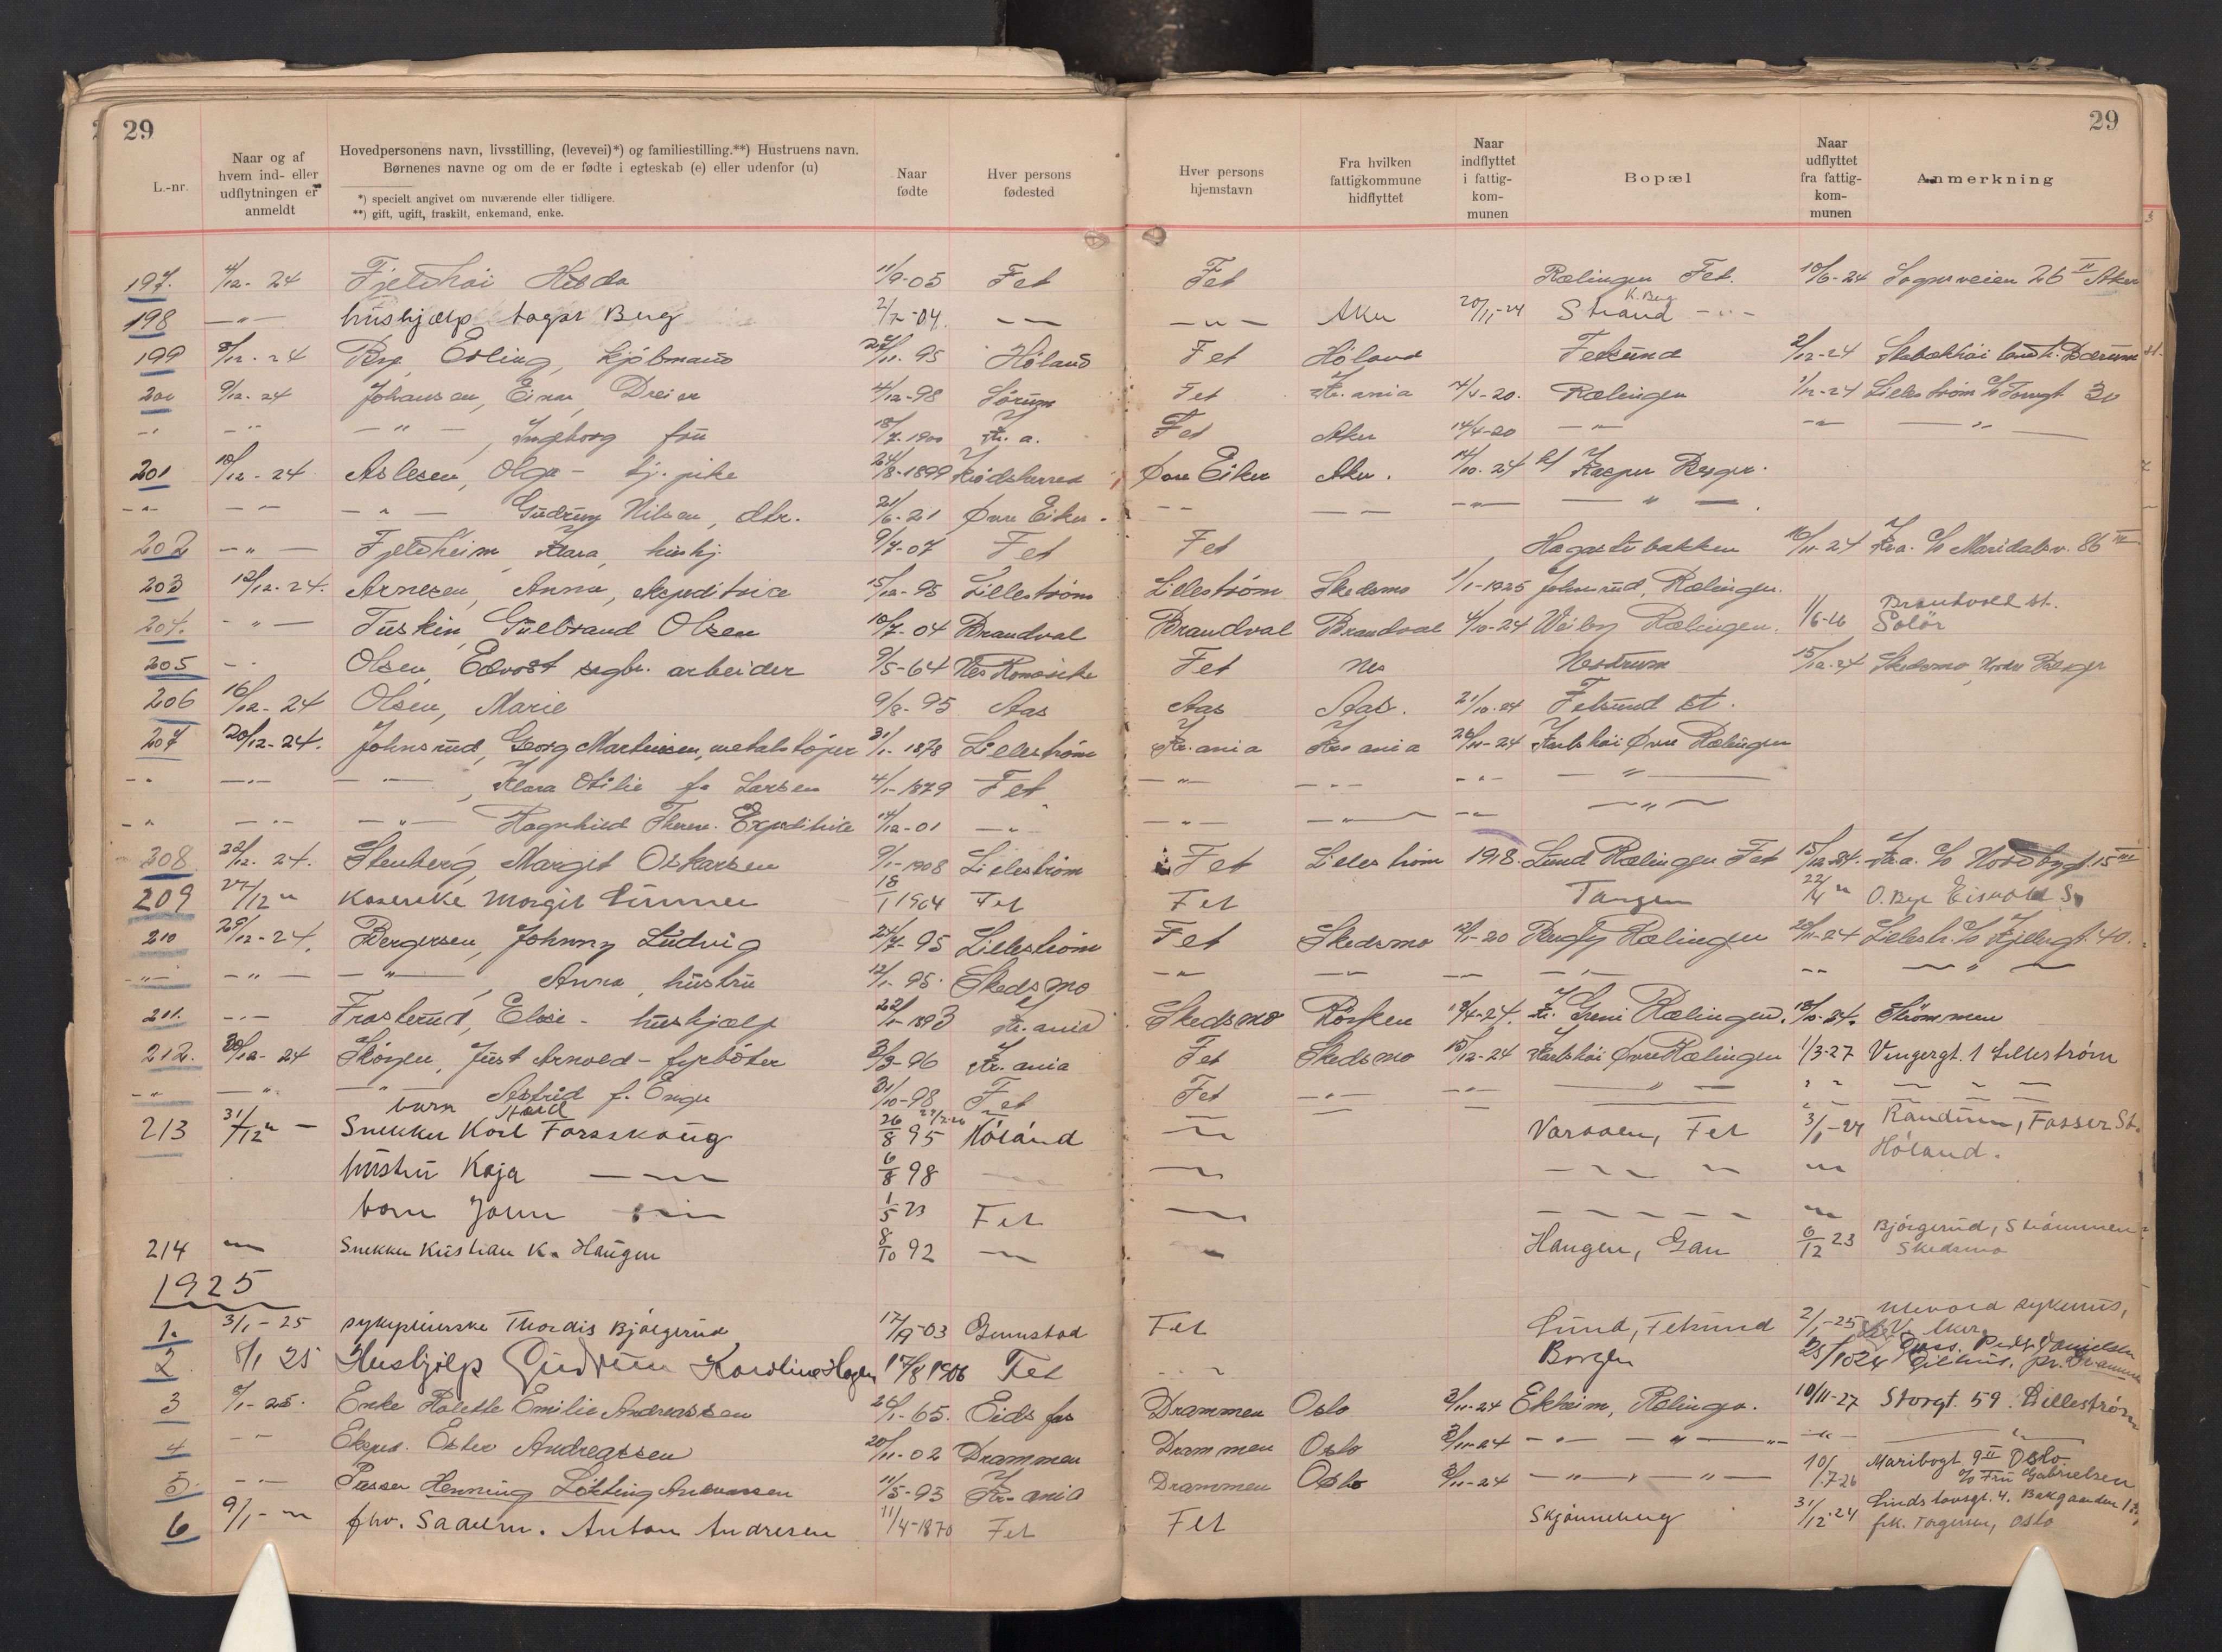 29
29
L.-nr.
Naar og af hvem ind- eller udflytningen er anmeldt
Hovedpersonens navn, livsstilling, (levevei)*) og familiestilling.**) Hustruens navn.
Børnenes navne og om de er fødte i egteskab (e) eller udenfor (u)
*) specielt angivet om nuværende eller tidligere.
**) gift, ugift, fraskilt, enkemand, enke.
Naar fødte
Hver persons fødested
Hver persons hjemstavn
Fra hvilken fattigkommune hidflyttet
Naar indflyttet i fattig-kom-munen
Bopæl
Naar udflyttet fra fattig-kom-munen
Anmerkning
197. 4/12-24 Fjeldhöi Hilda 11/9-05 Fet Fet Rælingen Fet. 10/6-24 Sognsveien 26 II Aker
198 -"- hushjælp Dagny Berg 2/7-04. -"- -"- Aker 20/11-24 Strand K. Berg -"-
199 8/12-24 By, Erling, kjöbmand 11-95 Höland Fet Höland Fetsund 2/12-24 Bærum
200 9/12-24 Johansen, Einar, Dreier 4/12-98 Sörum Fet Kr.ania 14/4-20. Rælingen 1/12-24 Lilleström Torvgt 30
-"- -"- -"-, Ingeborg frü 18/7-1900 Kr.a. Fet Aker 14/4-20 -"- -"- -"-
201 10/12-24 Aslesen, Olga - tj. pike 24/8-1899 Krödsherred Övre Eiker Aker. 14/10-24 Kasper Berger.
-"- -"- -"- Gudrun Nilsen, dtr. 21/6-21 Övre Eiker. -"- -"- -"- -"-
202 -"- Fjeldheim, Klara, hushj. 9/7-07 Fet Fet Hagastubakken 16/11-24 Kr.a. c/o Maridalsv. 86 IV
203 12/12-24. Arnesen, Anna, Expeditrice 15/12-98 Lilleström Lilleström Skedsmo 1/1-1925 Johnsrud, Rælingen.
204. -"- Tuskin, Gulbrand Olsen 10/7-04 Brandval Brandval Brandval 4/10-24 Wæiby Rælingen. 1/6-26 Brandvold st. Solör
205 -"- Olsen, Edvart sagbr. arbeider 9/5-64 Nes Romerike Fet Nes Nerdrum 15/12-24 Skedsmo, Nordre Berger
206 16/12-24 Olsen, Marie 9/8-95 Aas Aas Aas. 21/10-24 Fetsund st.
207 20/12-24. Johnsrud, Georg Martinsen, metalstöper 31/1-1878 Lilleström Kr.ania Kr.ania 26/11-24 Karlshöi Övre Rælingen
-"- -"- -"-, Klara Otilie f. Larsen 4/1-1879 Fet -"- -"- -"- -"-
-"- -"- -"- Ragnhild Therese. Expeditrice 14/12-01 -"- -"- -"- -"- -"-
208 22/12-24. Stenberg, Margit Oskarsen 9/1-1908 Lilleström Fet Lilleström 1918. Lund Rælingen Fet 15/12-24. Kr.a. c/o Nordbygt. 15 III
209 27/12 " Margit Linnea 18/1 1904 Fet Fet Tangen 22/4 " O. Bye Eisvold St
210 29/12-24. Bergersen, Johnny Ludvig 24/7-95 Lilleström Fet Skedsmo 12/1-20 Rælingen 20/11-24 Lillestr. c/o Kjellergt. 40.
-"- -"- -"-, Anna, hustru 12/1-95. Skedsmo -"- -"- -"- -"- -"- -"-
211. -"- Frosterud, Elvie - hushjælp 22/1-1893 Kr.ania Skedsmo Rörsken 1/4-24. Kr. Greni Rælingen. 18/10-24. Strömmen
212. 30/12-24 Skogen, Just Arnold - fyrböter 3/3-96 Kr.ania Fet Skedsmo 10/12-24 Karlshöi Övre Rælingen 1/3-27 Vengergt. 1 Lillestrøm
-"- -"- -"- Astrid f. Enger 31/10-98 Fet Fet -"- -"- -"- -"- -"-
barn
213 31/12 " - Snekker Karl Forsskaug 26/8 95 Höland -"- Varaaen, Fet 3/1-24 Randum, Fosser St. Höland.
hustru Kaja -"- 6/8 98 -"- -"- -"-
barn John -"- 1/5 23 Fet -"- -"- -"-
214 -"- Snekker Kristian K. Haugen 8/10 92 -"- -"- Haugen, Gan 6/12 23 Björgerud, Strömmen Skedsmo
1925
1. 3/1-25 sykepleierske Thordis Björgerud 17/9-03 Fet Lund, Fetsund 2/1-25 Ulevold sykehus, V. Aker
2 8/1 25 Hushjelp Gudrun Karoline Hagen 17/8 1906 Fet -"- Borgen 25/10 24 Gilhus, pr. Drammen
3 9/1-25. Enke Halette Emilie Andreassen 26/1-65. Eidsfos Drammen Oslo 3/11-24 Ekheim, Rælingen. 10/11-27 Storgt. 59. Lillestrøm
4 -"- Exped. Ester Andreassen 20/11-02 Drammen Drammen Oslo 3/11-24 -"- -"- -"- -"-
5. -"- Passer Henning Lökting Andreassen 11/5-93 Kr.ania Drammen Oslo 3/11-24 -"- -"- 10/7-26 Maribogt. 9 II Oslo c/o Fru Gabrielsen
6 9/1-" fhv. Sadelm. Anton Andresen 11/4-1870 Fet Fet Skjönneberg 31/12-24 4. Bakgaarden frk. Torgersen, Oslo